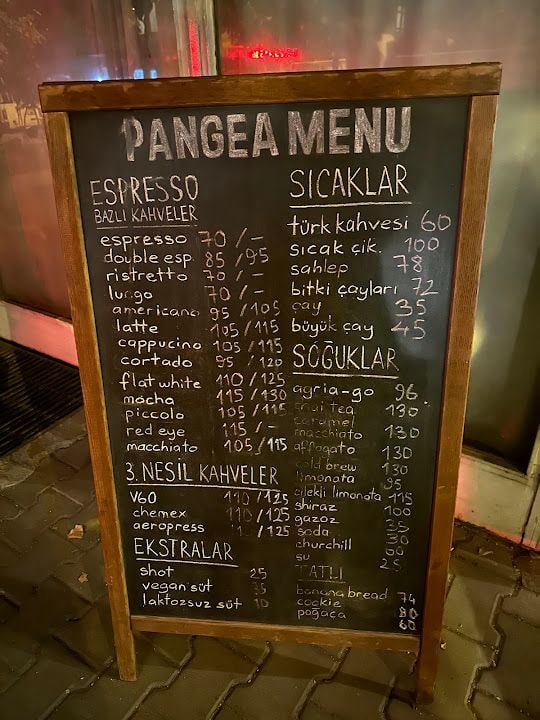 PANGEA MENU
ESPRESSO
BAZLI KAHVELER
espresso 70 / -
double esp 85 / 95
ristretto 70 / -
lungo 70 / -
americano 95 / 105
latte 105 / 115
cappucino 105 / 115
cortado 95 / 120
flat white 110 / 125
mocha 115 / 130
piccolo 105 / 115
red eye 115 / -
macchiato 105 / 115
3. NESİL KAHVELER
V60 110 / 125
chemex 110 / 125
aeropress / 125
EKSTRALAR
shot 25
vegan süt
laktozsuz süt 10
SICAKLAR
türk kahvesi 60
sıcak çik. 100
sahlep 78
bitki çayları 72
çay 35
büyük çay 45
SOĞUKLAR
agria-go 96
fruit tea 130
caramel
macchiato 130
affogato 130
cold brew 130
limonata 95
çilekli limonata 115
shiraz 100
gazoz 35
soda 30
churchill 60
su 25
TATLI
banana bread 74
cookie 80
poğaça 60